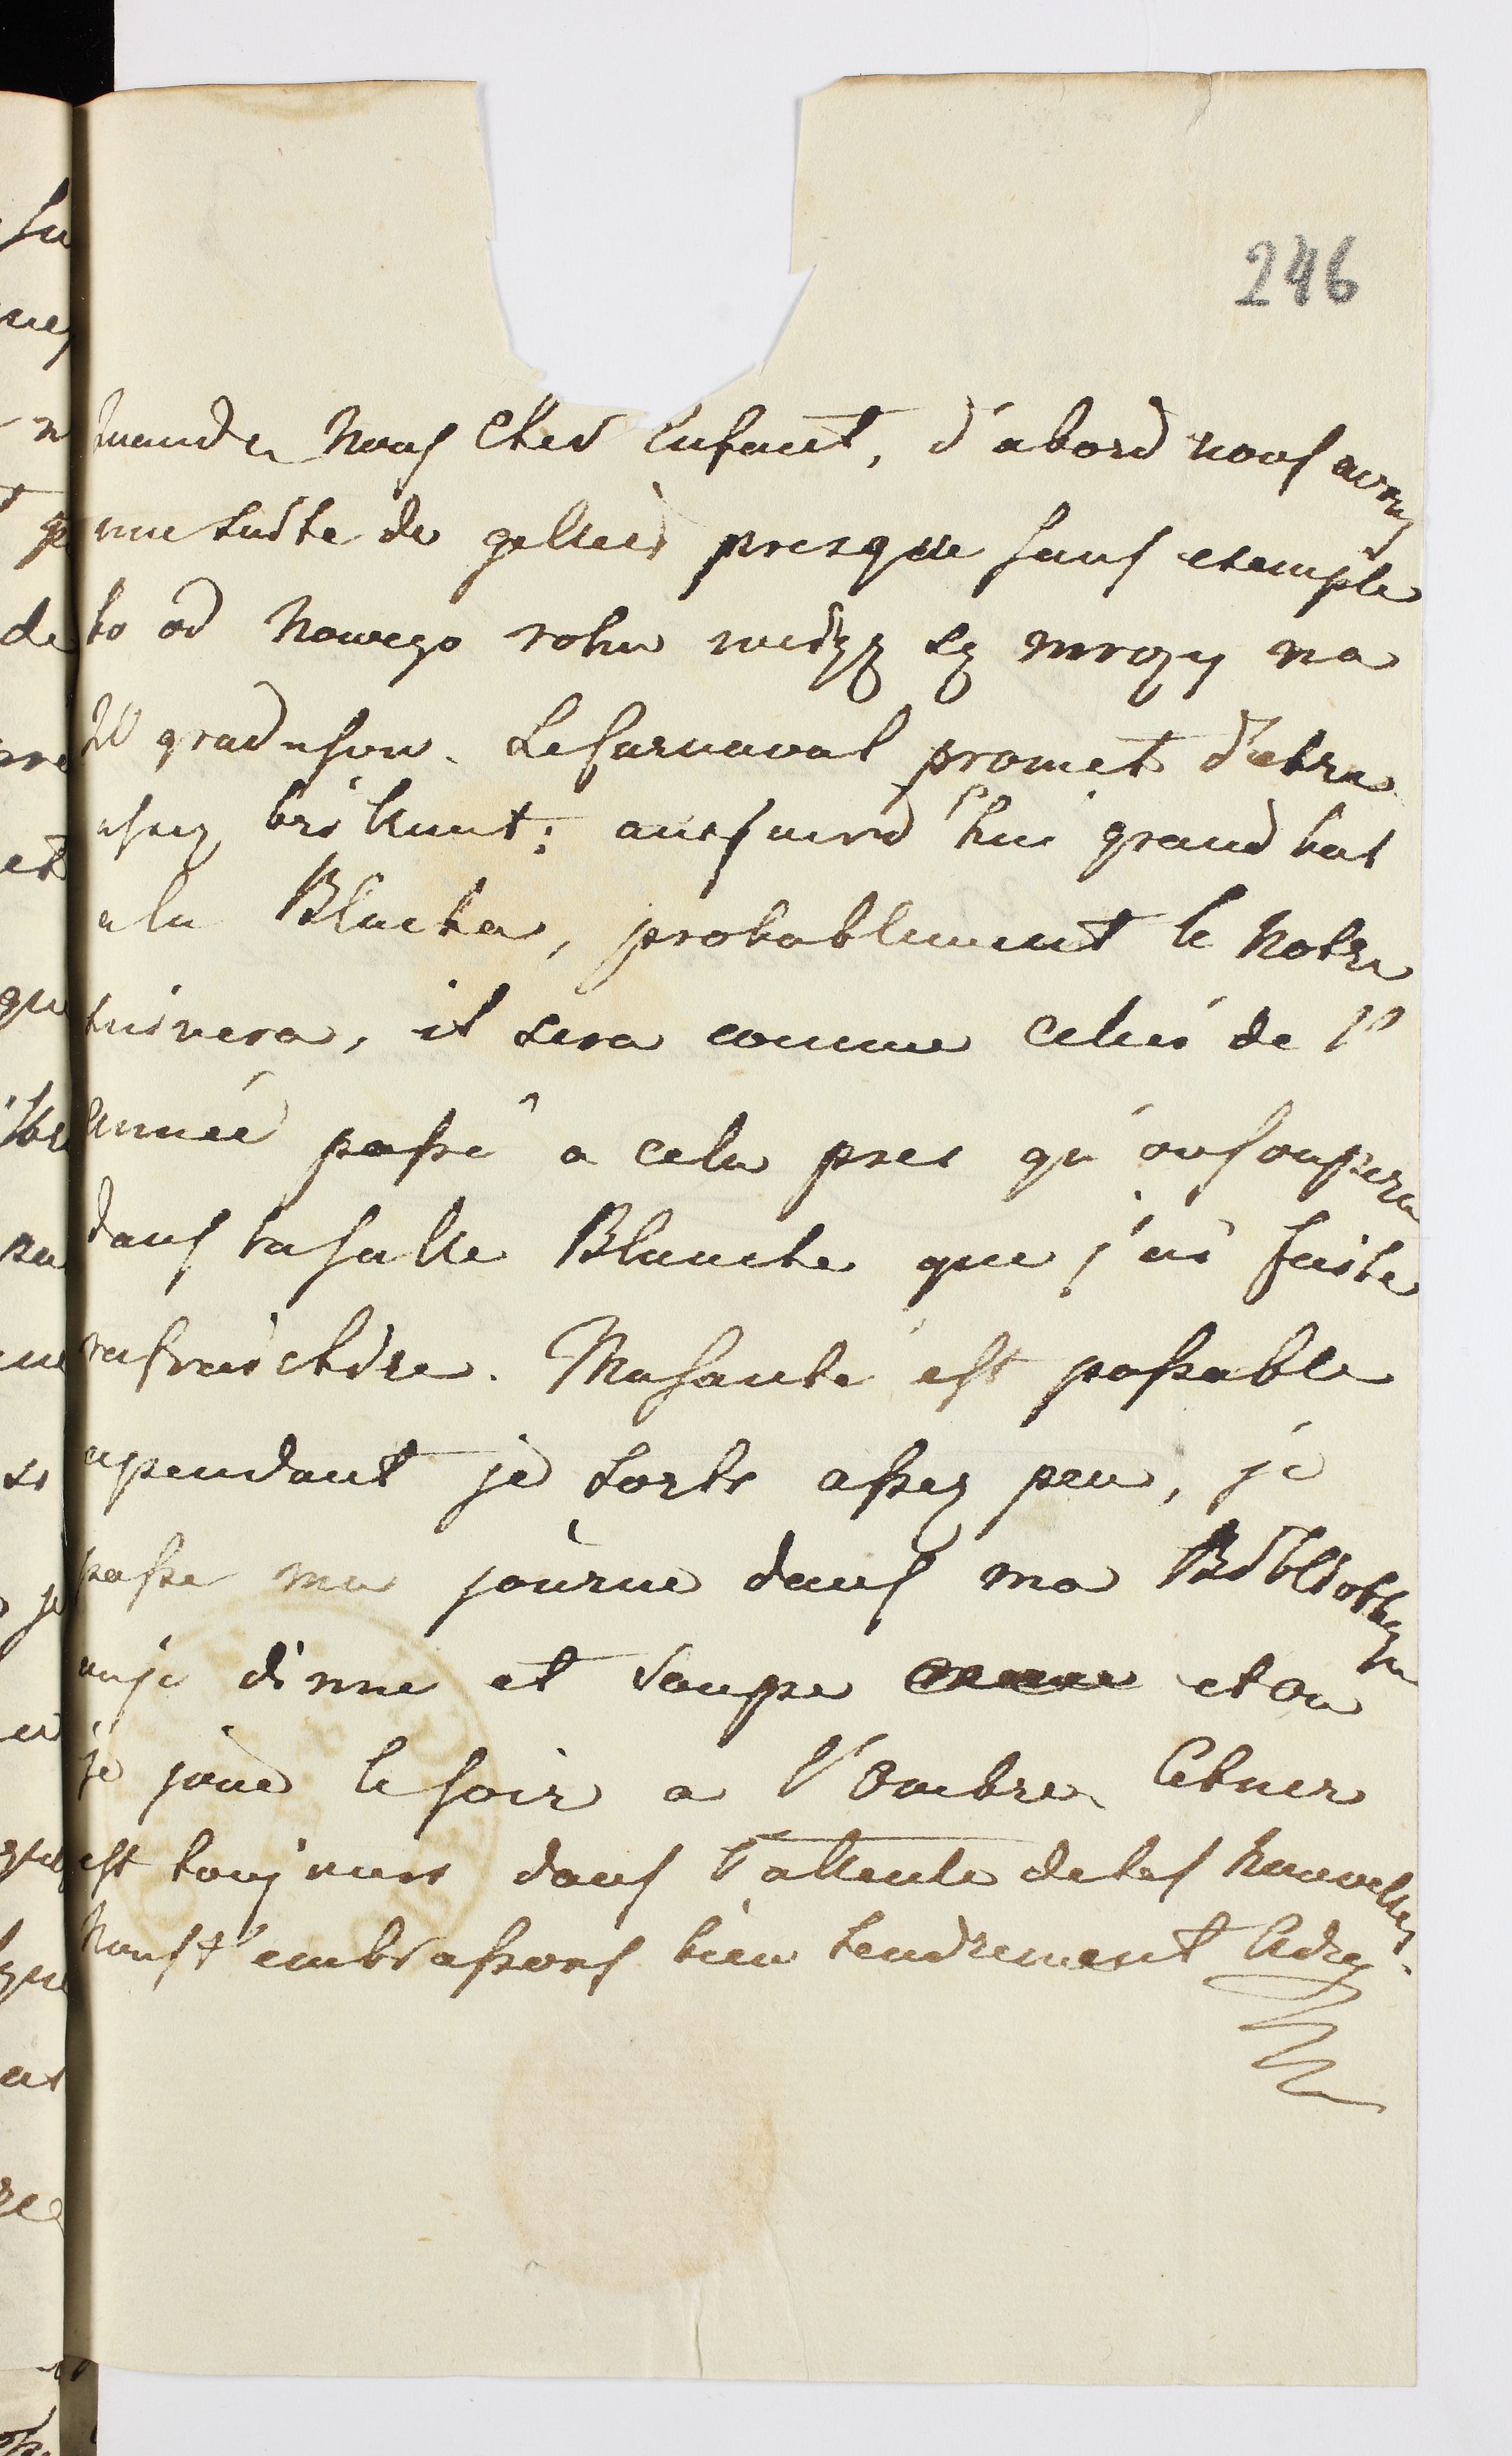 246
mande Nous Cher Enfant, d'abord nous avons
une suite de gellées presque sans exemple
bo od Nowego roku ciągą są mrozy na
20 gradusow. Le Carnaval promet d'etre
assez brillant: aussjourd'hui grand bal
a la Blacha, probablement le Notre
suivera, il sera comme celui de l'
année passé a cela pres qu'on soupera
dans la salle Blanche que j'ai faite
rafraichire. Ma santé est passable
cependant je sorts assez peu, je
passe ma journe dans ma Bibliotheque
ou je dinne et soupe et ou
je joue le soir a l'Ombre. Cetner
est toujours dans l'attente de tes Nouvelles
Nous t'embrassons bien tendrement Adieu.